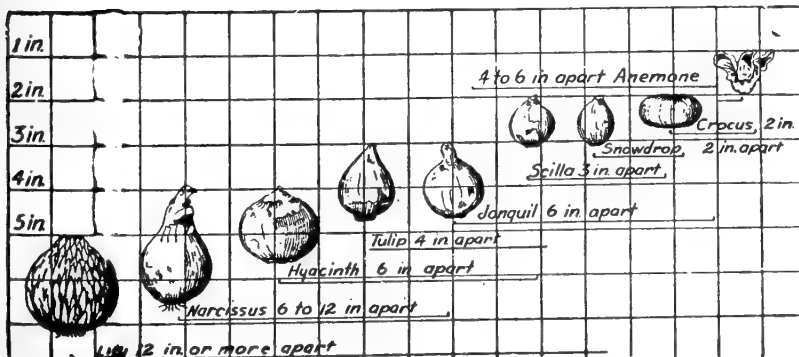 1 in.
4 to 6 in apart Anemone
2 in.
Crocus, 2 in.
3 in.
Snowdrop, 2 in. apart
Scilla 3 in. apart
4 in.
Jonquil 6 in apart
5 in.
Tulip 4 in apart
Hyacinth 6 in apart
Narcissus 6 to 12 in apart
Lily 12 in. or more apart